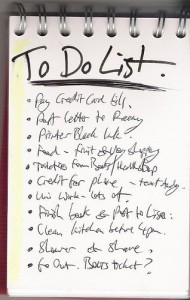 To Do List.
• Pay Credit Card bill.
• Post letter to
• Printer Black Ink.
• Food - fruit & veg
• from Boots /
• Credit for phone - text
• Uni work - lots of.
• Finish book & post to Lisa.
• Clean kitchen before
• Shower & Shave.
• Go Out. ticket?